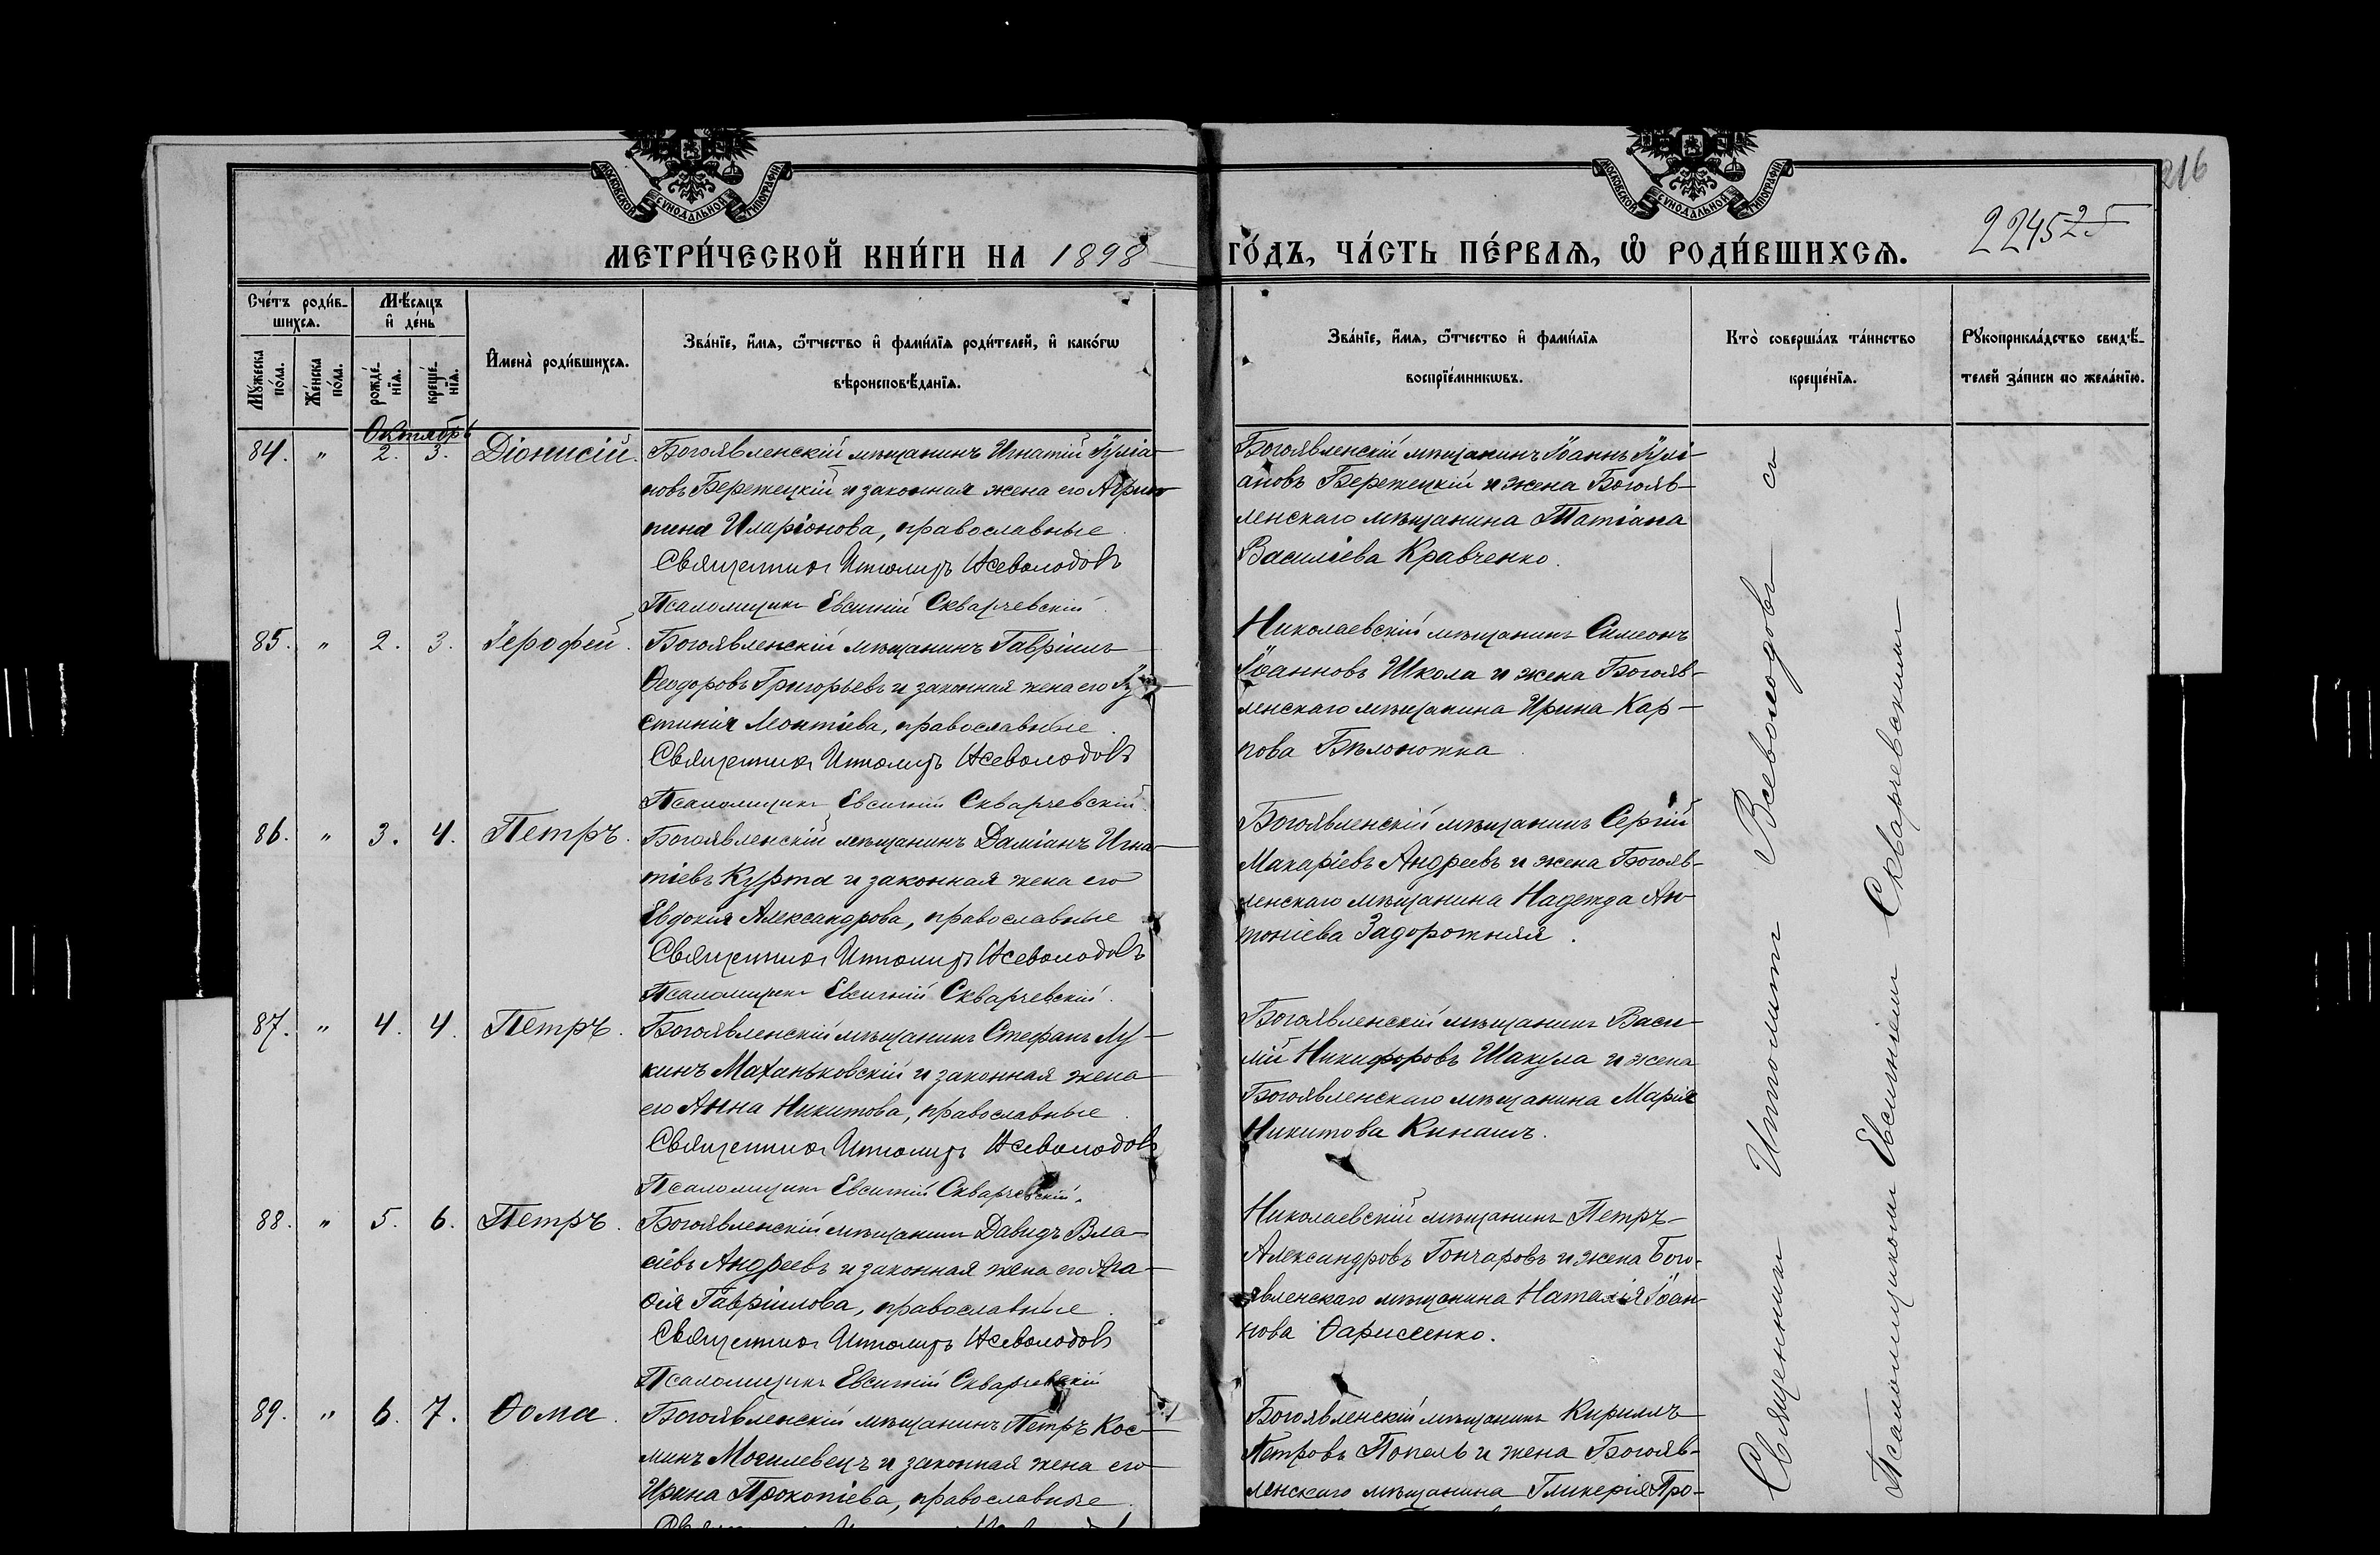 216
224525
МОСКОВСКОЙ СѴНОДАЛЬНОЙ ТИПОГРАФІИ
МОСКОВСКОЙ СѴНОДАЛЬНОЙ ТИПОГРАФІИ
МЕТРИ́ЧЕСКОЙ КНИ́ГИ НА 1898 ГО́ДЪ, ЧА́СТЬ ПЕ́РВАѦ, Ѡ҆ РОДИ́ВШИХСѦ.
Сче́тъ роди́в-
шихсѧ.
Мꙋ́жеска
по́ла.
Же́нска
по́ла.
Мѣ́сѧцъ
и҆ де́нь
рожде́-
нїѧ.
креще́-
нїѧ.
И҆мена̀ роди́вшихсѧ.
Зва́нїе, и҆́мѧ, ѻ҆́тчество и҆ фами́лїѧ роди́телей, и҆ како́гѡ
вѣроисповѣ́данїѧ.
Зва́нїе, и҆́мѧ, ѻ҆́тчество и҆ фами́лїѧ
воспрїе́мникѡвъ.
Кто̀ соверша́лъ та́инство
креще́нїѧ.
Рꙋкоприкла́дство свидѣ́-
телей за́писи по жела́нїю.
Октябрь
84. " 2. 3. Діонисій.
Богоявленскій мѣщанинъ Игнатій Іуліа-
новъ Бережецкій и законная жена его Агрип-
пина Иларіонова, православные.
Священникъ Ипполитъ Всеволодовъ
Псаломщикъ Евсигній Скварчевскій
Богоявленскій мѣщанинъ Іоаннъ Іулі-
ановъ Бережецкій и жена Богояв-
ленскаго мѣщанина Татіана
Василіева Кравченко.
85. " 2. 3. Іерофей.
Богоявленскій мѣщанинъ Гавріилъ
Ѳеодоровъ Григорьевъ и законная жена его Іу-
стинія Леонтіева, православные.
Священникъ Ипполитъ Всеволодовъ
Псаломщикъ Евсигній Скварчевскій.
Николаевскій мѣщанинъ Симеонъ
Іоанновъ Школа и жена Богояв-
ленскаго мѣщанина Ирина Кар-
пова
86. " 3. 4. Петръ.
Богоявленскій мѣщанинъ Даміанъ Игна-
тіевъ Курта и законная жена его
Евдокія Александрова, православные
Священникъ Ипполитъ Всеволодовъ
Псаломщикъ Евсигній Скварчевскій.
Богоявленскій мѣщанинъ Сергій
Макаріевъ Андреевъ и жена Богояв-
ленскаго мѣщанина Надежда Ан-
тоніева Задорожняя.
87. " 4. 4. Петръ.
Богоявленскій мѣщанинъ Стефанъ Лу-
кинъ Маханьковскій и законная жена
его Анна Никитова, православные.
Священникъ Ипполитъ Всеволодовъ
Псаломщикъ Евсигній Скварчевскій.
Богоявленскій мѣщанинъ Васи-
лій Никифоровъ Шакула и жена
Богоявленскаго мѣщанина Марія
Никитова Кинашъ.
88. " 5. 6. Петръ.
Богоявленскій мѣщанинъ Давидъ Вла-
сіевъ Андреевъ и законная жена его Ага-
ѳія Гавріилова, православные.
Священникъ Ипполитъ Всеволодовъ
Псаломщикъ Евсигній Скварчевскій
Николаевскій мѣщанинъ Петръ
Александровъ Гончаровъ и жена Бого-
явленскаго мѣщанина Наталія Іоан-
нова
89. " 6. 7. Ѳома.
Богоявленскій мѣщанинъ Петръ Кос-
минъ Могилевецъ и законная жена его
Ирина Прокопіева, православные.
Богоявленскій мѣщанинъ Кириллъ
Петровъ Попель и жена Богояв-
ленскаго мѣщанина Гликерія Про-
Священникъ Ипполитъ Всеволодовъ съ
Псаломщикомъ Евсигніемъ Скварчевскимъ